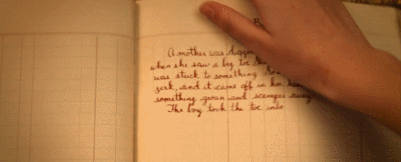 B
A mother was diggin
when she saw a big toe
was stuck to something
jerk, and it came off in her
something groan and scamper away
The boy took the toe into